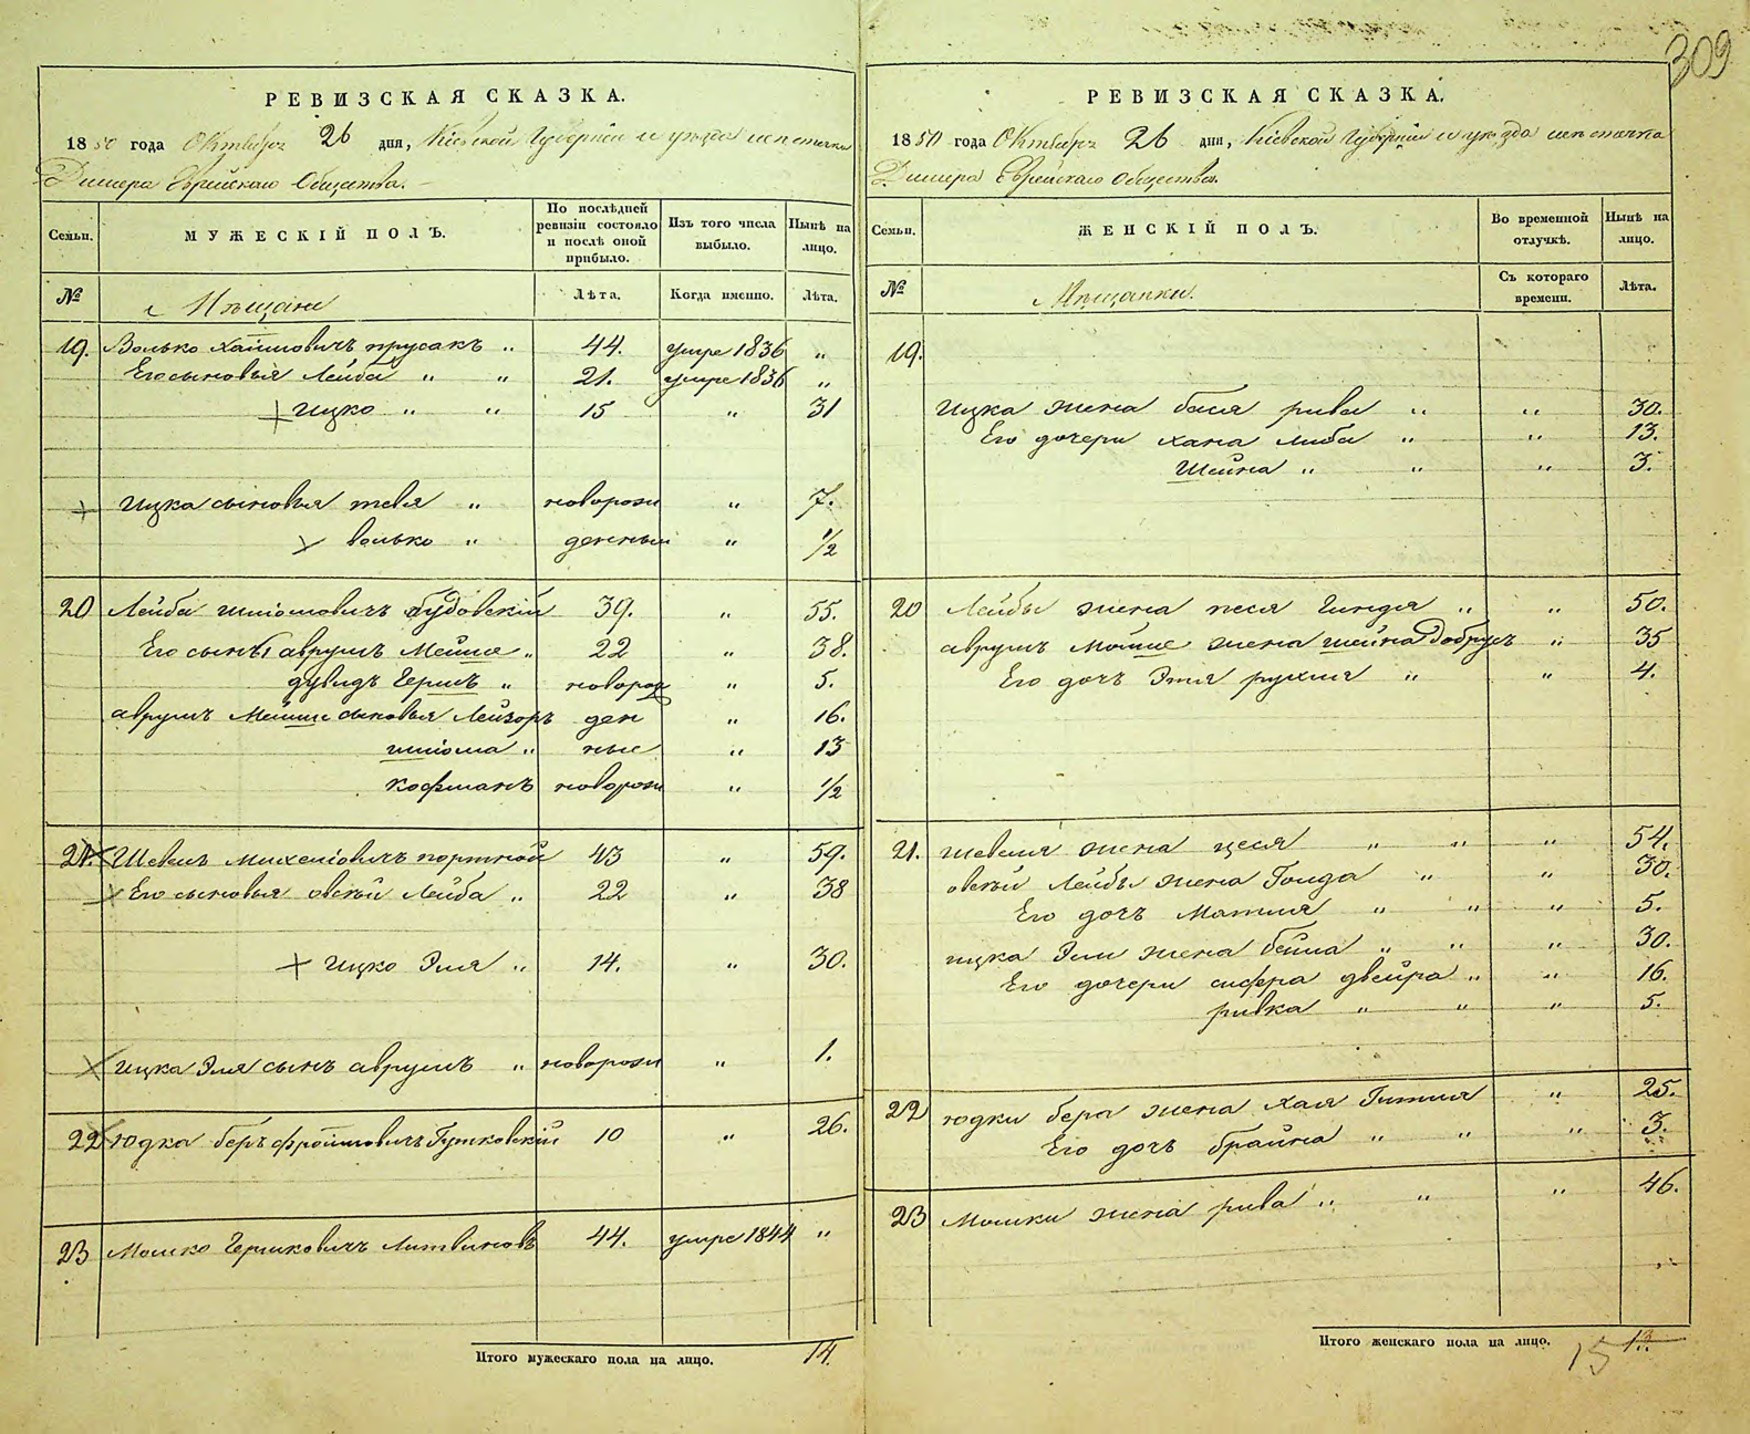 309
РЕВИЗСКАЯ СКАЗКА.
1850 года Октября 26 дня, Кіевской Губерніи и уезда местечка
Димера Еврейскаго Общества.
Семьи. МУЖЕСКІЙ ПОЛЪ. По послѣдней ревизіи состояло и послѣ оной прибыло. Изъ того числа выбыло. Нынѣ на лицо.
№ Мѣщане Лѣта. Когда именно. Лѣта.
19. Волько Хаимовичъ прусакъ " 44. умре 1836 "
Его сыновья Лейба " " 21. умре 1836 "
Ицко " " 15 " 31
Ицка сыновья тевя " новорож " 7.
волько " денныи " 1/2
20 Лейба шліомовичъ будовскій 39. " 55.
Его сынъ аврумъ Мойше " 22 " 38.
дувидъ Гершъ " новорож " 5.
аврумъ Мойши сыновья Лейзоръ ден " 16.
шліома " ные " 13
кофманъ новорож " 1/2
21. Шевель михеліовичъ портной 43 " 59.
Его сыновья овсѣй Лейба " 22 " 38
Ицко Эля " 14. " 30.
Ицка Эля сынъ аврумъ " новорож " 1.
22 юдка беръ фроимовичъ Гутковскій 10 " 26.
23 Мошко Гершковичъ Литвиновъ 44. умре 1844 "
Итого мужескаго пола на лицо. 14.
РЕВИЗСКАЯ СКАЗКА.
1850 года Октября 26 дня, Кіевской Губерніи и уезда местечка
Димера Еврейскаго Общества.
Семьи. ЖЕНСКІЙ ПОЛЪ. Во временной отлучкѣ. Нынѣ на лицо.
№ Мѣщанки. Съ котораго времени. Лѣта.
19.
Ицка жена бася рива " " 30.
Его дочери хана либа " " 13.
Шейна " " " 3.
20 Лейбы жена песя Гиндя " " 50.
аврумъ Мойше жена шейна Добрусъ " 35
Его дочъ Этя рухля " " 4.
21. шевеля жена цеся " " " 54.
овсѣй Лейбы жена Голда " " 30.
Его дочъ Матля " " " 5.
ицка Эли жена бейла " " " 30.
Его дочери сифра двейра " " 16.
ривка " " " 5.
22 юдки бера жена хая Гитля " 25.
Его дочъ брайна " " " 3.
23 Мошки жена рива " " " 46.
Итого женскаго пола на лицо. 15